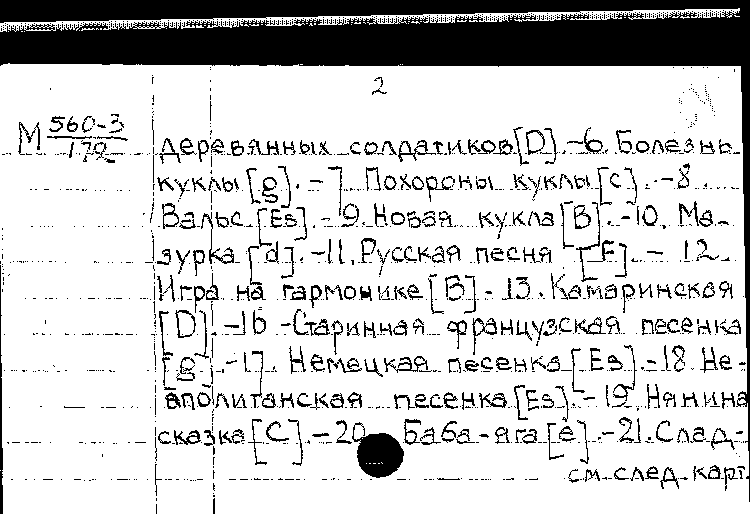 2
М 560-3/172
деревянных солдатиков [D].-6. Болезнь
куклы [g].-7. Похороны куклы [c].-8.
Вальс. [Es].-9. Новая кукла [B].-10. Ма-
зурка [d].-11. Русская песня [F].-12.
Игра на гармонике [B]-13. Камаринская
[D].-16-Старинная французская песенка
[g].-17. Немецкая песенка [Es].-18 Не-
аполитанская песенка [Es].-19. Нянина
сказка [C].-20. Баба-яга [e].-21. Слад-
см. след. карт.